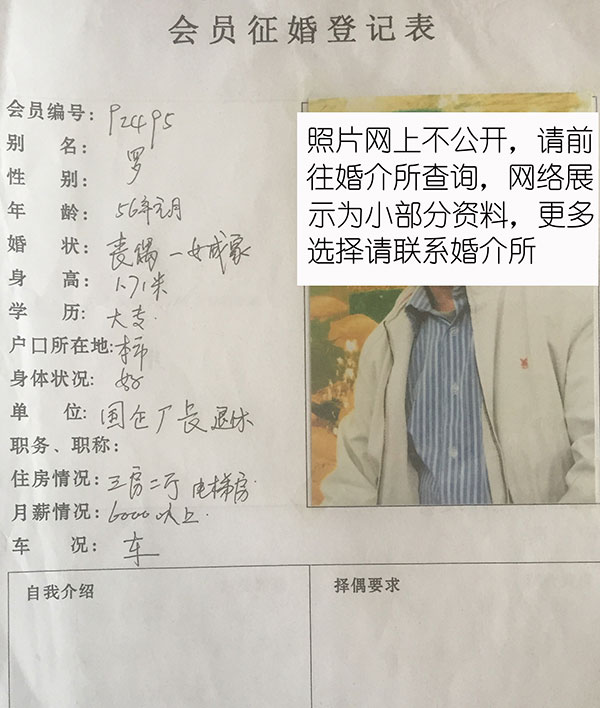 会员征婚登记表
会员编号：P2495
别　名：罗
性　别：
年　龄：56年元月
婚　状：丧偶 一女成家
身　高：1.71米
学　历：大专
户口所在地：本市
身体状况：好
单　位：国企厂长退休
职务、职称：
住房情况：三房二厅 电梯房
月薪情况：6000以上
车　况：车
照片网上不公开，请前
往婚介所查询，网络展
示为小部分资料，更多
选择请联系婚介所
自我介绍
择偶要求